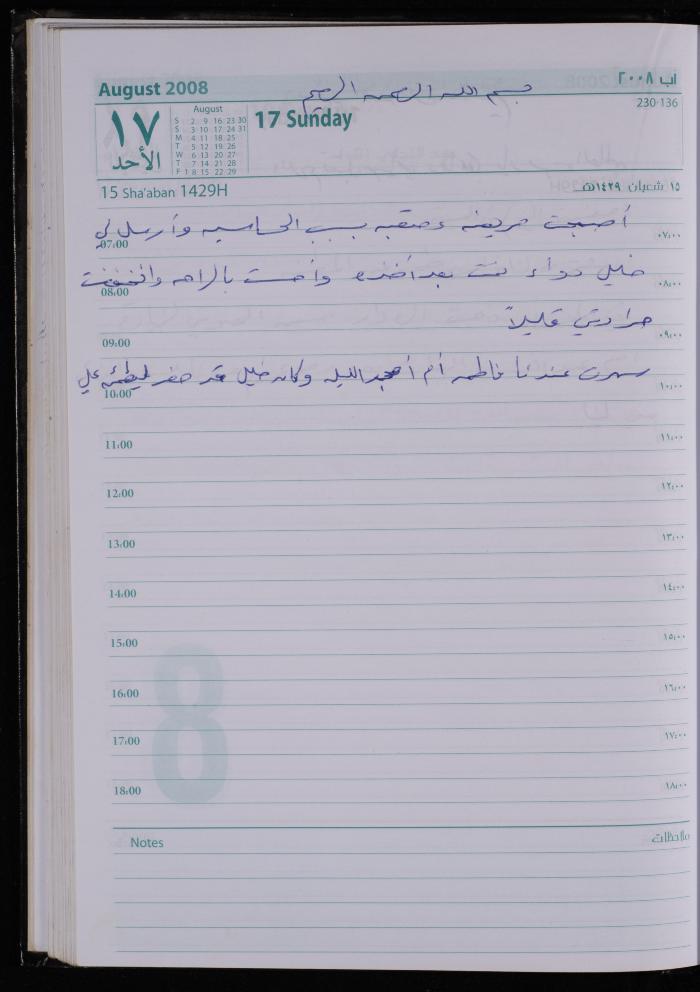 August 2008
بسم الله الرحمن الرحيم
آب ٢٠٠٨
230-136
١٧
الأحد
August
S 2 9 16 23 30
S 3 10 17 24 31
M 4 11 18 25
T 5 12 19 26
W 6 13 20 27
T 7 14 21 28
F 1 8 15 22 29
17 Sunday
15 Sha'aban 1429H
١٥ شعبان ١٤٢٩هـ
أصبحت مريضه ومتعبه بسبب الحساسيه وأرسل لي
07:00 ٠٧:٠٠
خليل دواء نمت بعد أخذه وأحسست بالراحه وانخفضت
08:00 ٠٨:٠٠
حرارتي قليلاً
09:00 ٠٩:٠٠
سهرت عندنا فاطمه أم أمجد الليله وكان خليل قد حضر ليطمئن علي
10:00 ١٠:٠٠
11:00 ١١:٠٠
12:00 ١٢:٠٠
13:00 ١٣:٠٠
14:00 ١٤:٠٠
15:00 ١٥:٠٠
16:00 ١٦:٠٠
17:00 ١٧:٠٠
18:00 ١٨:٠٠
8
Notes
ملاحظات